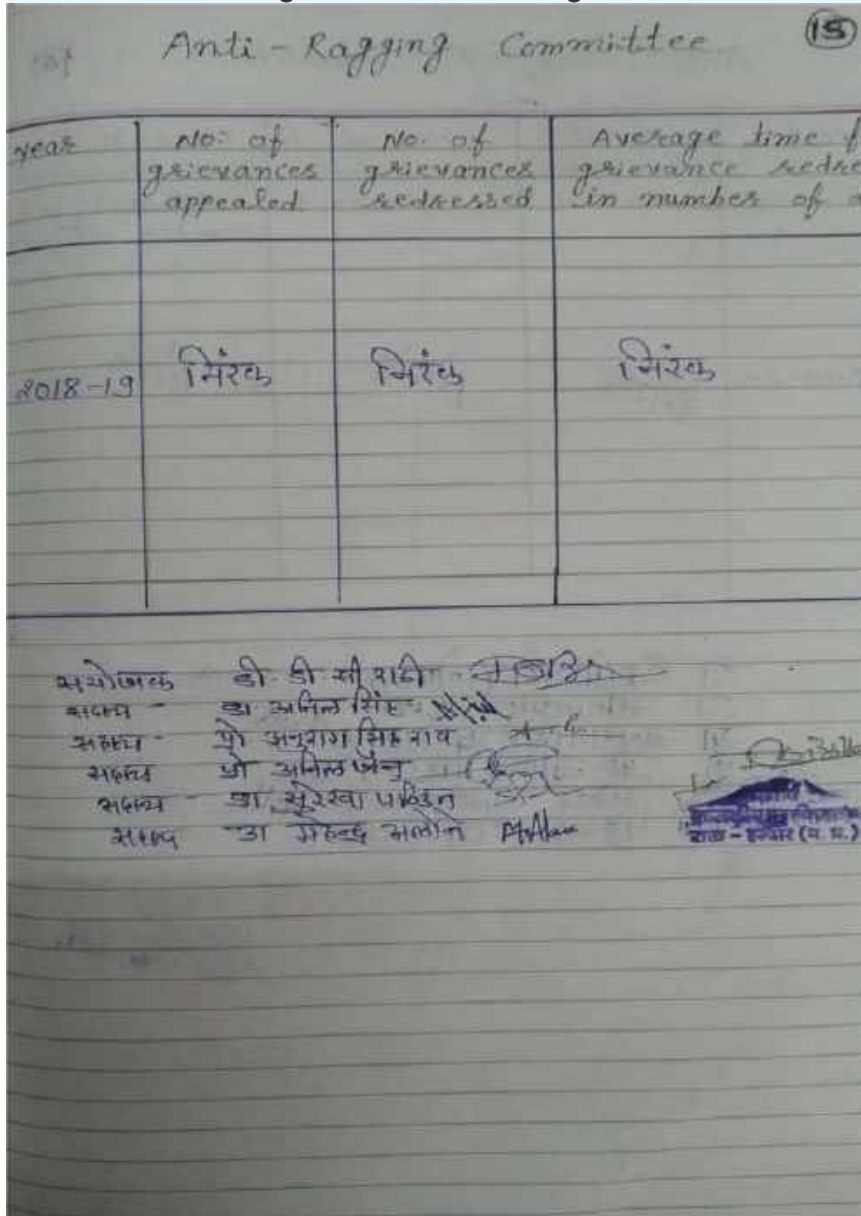 Anti-Ragging Committee
15
year No. of grievances appealed No. of grievances redressed Average time f
grievance redre
in number of
2018-19 निरंक निरंक निरंक
सयोजक डी. डी सी राठी
सदस्य - डा अनिल सिंह
सदस्य - प्रो अनुराग सिंह राव
सदस्य प्रो अनिल जैन
सदस्य - डा. सुरेखा
सदस्य डा महेन्द्र अलोने
(म. प्र.)